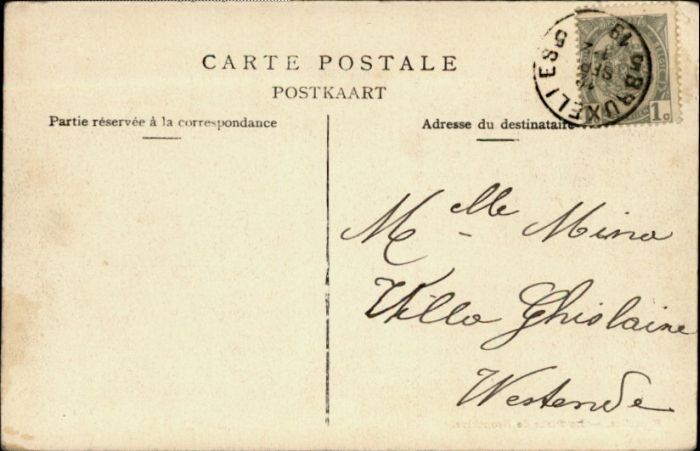 CARTE POSTALE
POSTKAART
Partie réservée à la correspondance
Adresse du destinataire
BRUXELLES
1c
Melle Mina
Villa Ghislaine
Westende